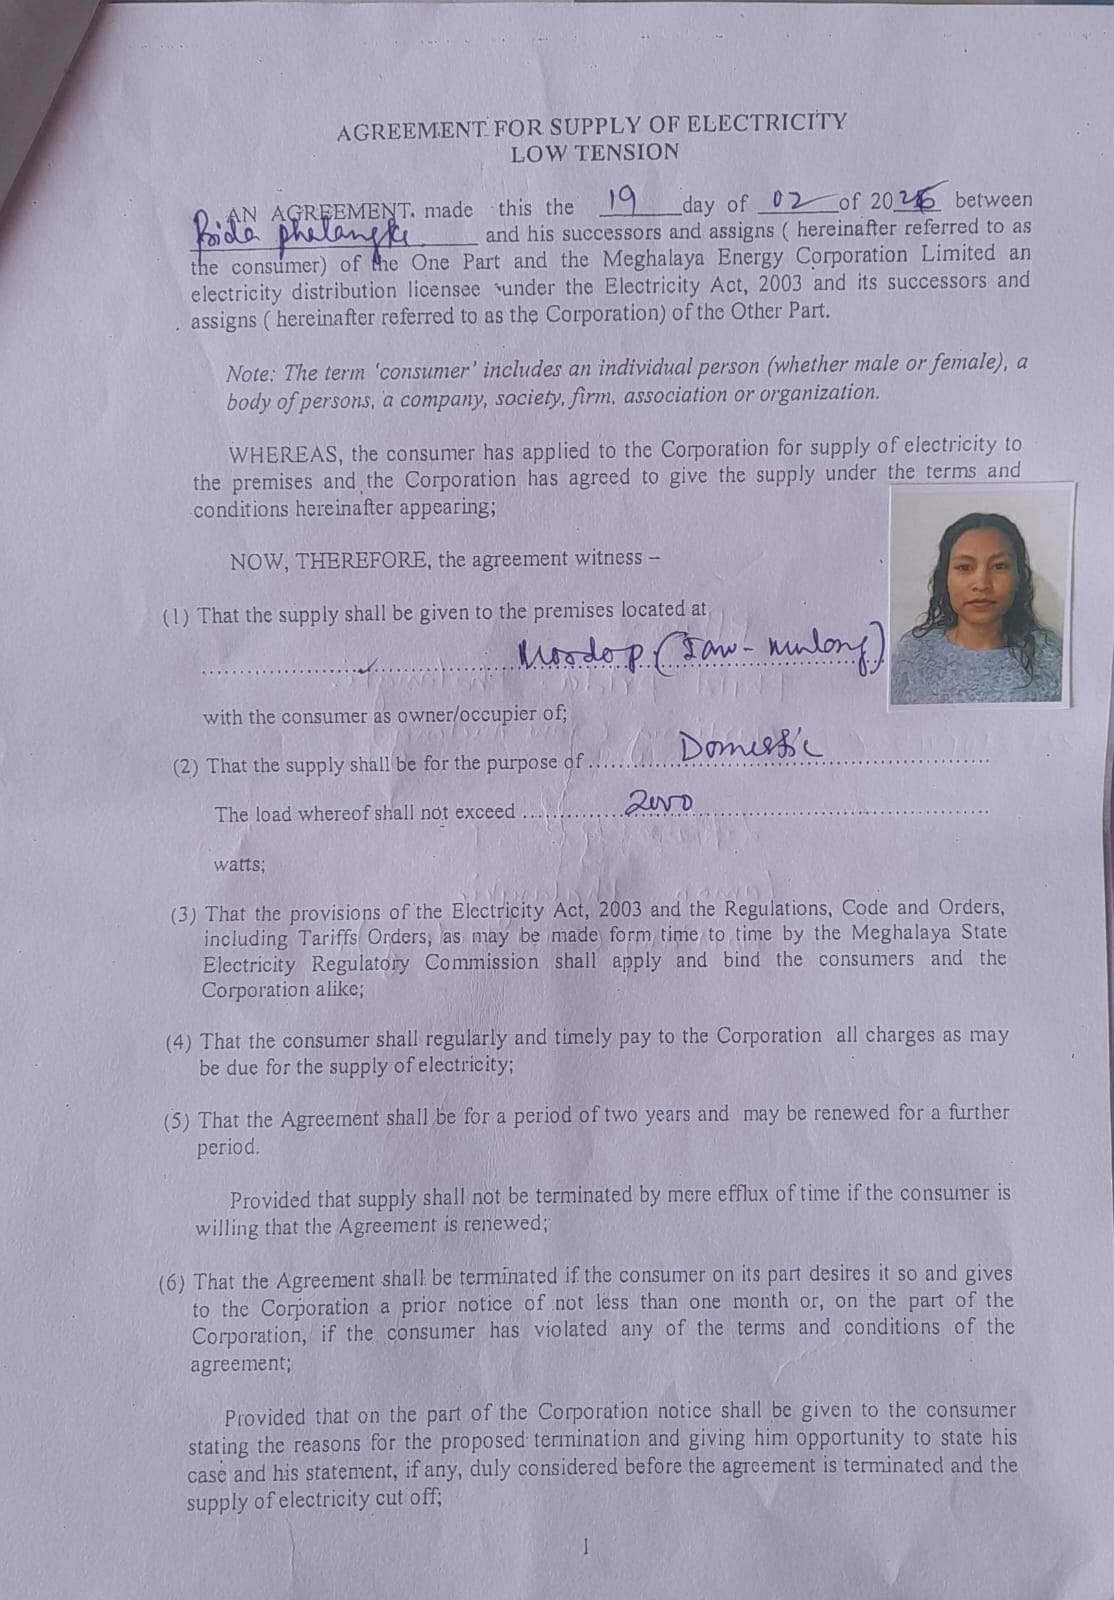 AGREEMENT FOR SUPPLY OF ELECTRICITY
LOW TENSION
AN AGREEMENT. made this the 19 day of 02 of 20 between
and his successors and assigns ( hereinafter referred to as
the consumer) of the One Part and the Meghalaya Energy Corporation Limited an
electricity distribution licensee under the Electricity Act, 2003 and its successors and
assigns ( hereinafter referred to as the Corporation) of the Other Part.
Note: The term 'consumer' includes an individual person (whether male or female), a
body of persons, a company, society, firm, association or organization.
WHEREAS, the consumer has applied to the Corporation for supply of electricity to
the premises and the Corporation has agreed to give the supply under the terms and
conditions hereinafter appearing;
NOW, THEREFORE, the agreement witness –
(1) That the supply shall be given to the premises located at
with the consumer as owner/occupier of;
(2) That the supply shall be for the purpose of ..... Domestic
The load whereof shall not exceed
watts;
(3) That the provisions of the Electricity Act, 2003 and the Regulations, Code and Orders,
including Tariffs Orders, as may be made form time to time by the Meghalaya State
Electricity Regulatory Commission shall apply and bind the consumers and the
Corporation alike;
(4) That the consumer shall regularly and timely pay to the Corporation all charges as may
be due for the supply of electricity;
(5) That the Agreement shall be for a period of two years and may be renewed for a further
period.
Provided that supply shall not be terminated by mere efflux of time if the consumer is
willing that the Agreement is renewed;
(6) That the Agreement shall be terminated if the consumer on its part desires it so and gives
to the Corporation a prior notice of not less than one month or, on the part of the
Corporation, if the consumer has violated any of the terms and conditions of the
agreement;
Provided that on the part of the Corporation notice shall be given to the consumer
stating the reasons for the proposed termination and giving him opportunity to state his
case and his statement, if any, duly considered before the agreement is terminated and the
supply of electricity cut off;
1